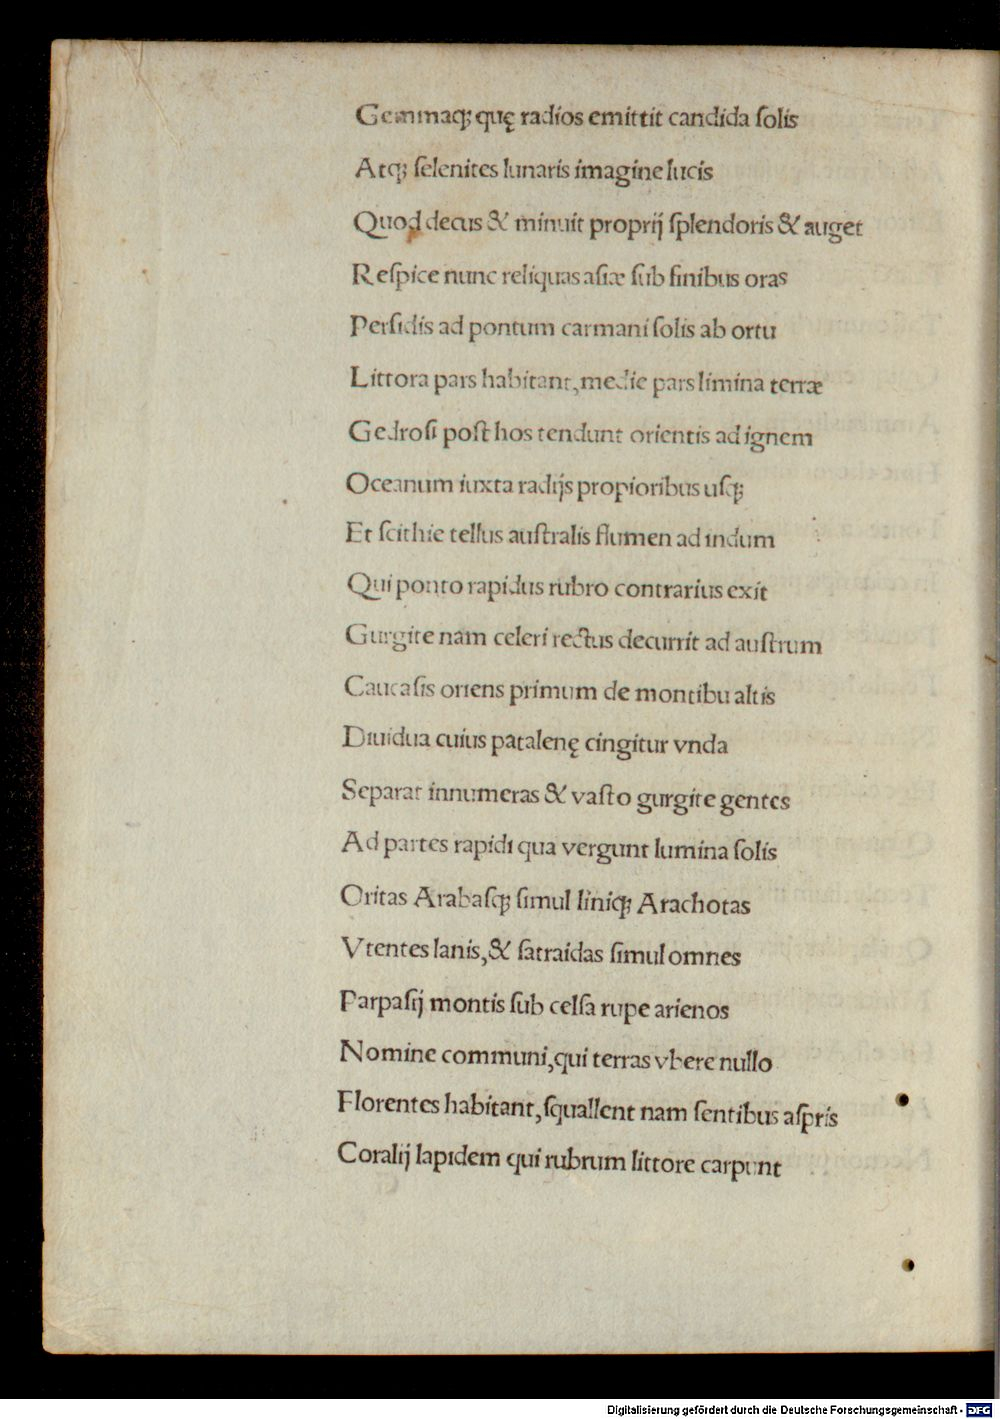 Gemmaq; quę radios emittit candida ſolis
Atq; ſelenites lunaris imagine lucis
Quod decus & minuit proprij ſplendoris & auget
Reſpice nunc reliquas aſiæ ſub finibus oras
Perſidis ad pontum carmani ſolis ab ortu
Littora pars habitant, medie pars limina terræ
Gedroſi poſt hos tendunt orientis ad ignem
Oceanum iuxta radijs propioribus uſq;
Et ſcithie tellus auſtralis flumen ad indum
Qui ponto rapidus rubro contrarius exit
Gurgite nam celeri rectus decurrit ad auſtrum
Caucaſis oriens primum de montibu altis
Diuidua cuius patalenę cingitur vnda
Separat innumeras & vaſto gurgite gentes
Ad partes rapidi qua vergunt lumina ſolis
Oritas Arabaſq; ſimul liniq; Arachotas
Vtentes lanis, & ſatraidas ſimul omnes
Parpaſij montis ſub celſa rupe arienos
Nomine communi, qui terras vbere nullo
Florentes habitant, ſquallent nam ſentibus aſpris
Coralij lapidem qui rubrum littore carpunt
Digitalisierung gefördert durch die Deutsche Forschungsgemeinschaft - DFG